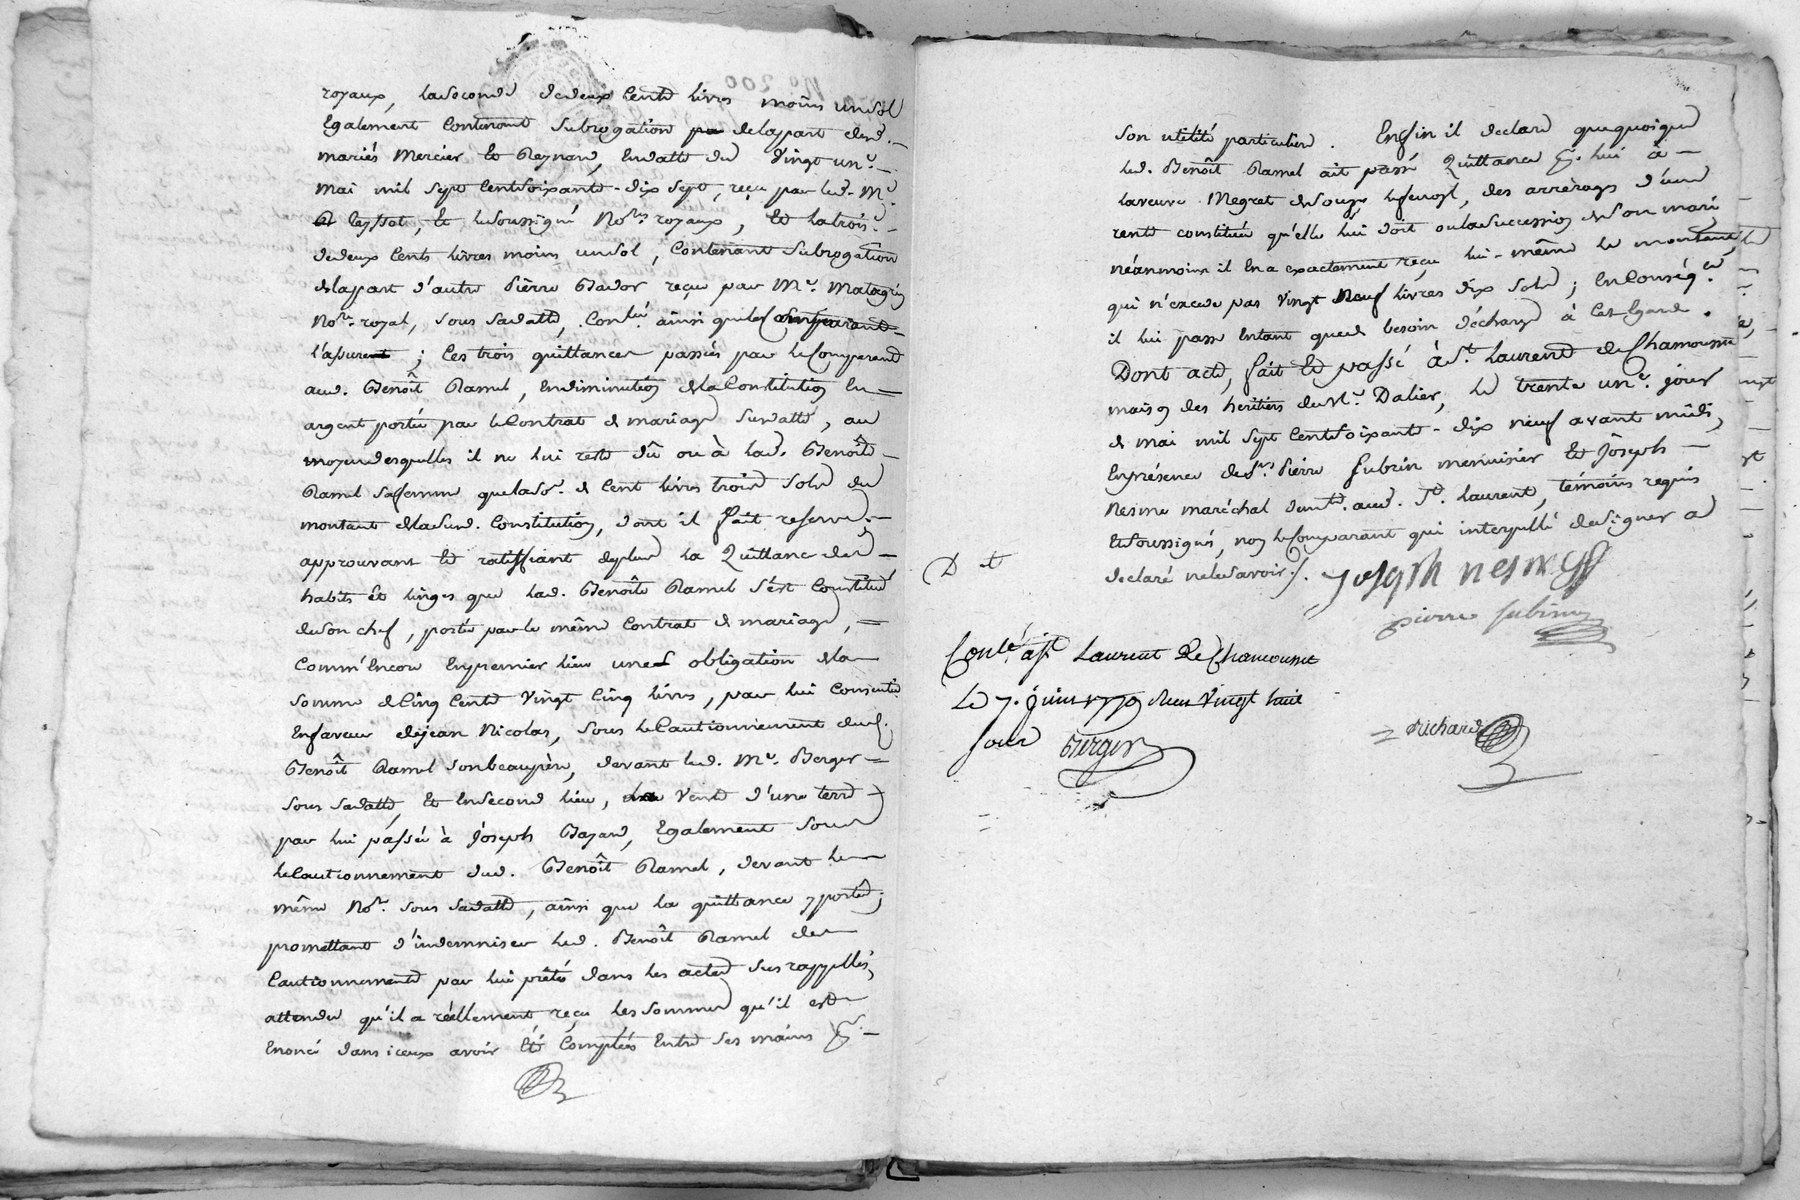 royaux, la Seconde de deux Cents livres moins un sol
Egalement Contenant Subrogation de la part desd.
mariés Mercier Et Reynard, En datte du Vingt un.e
mai mil Sept Cent soixante-dix Sept, reçu par led. M.e
Peyssot, Et le soussigné No.res royaux, Et la trois.e
de deux Cents livres moins un sol, Contenant Subrogation
de la part d'autre Pierre Bador reçue par M.e Matagrin
No.re royal, Sous Sa datte, Con.lé ainsi que le Comparant
l'assure; les trois quittances passées par le Comparant
aud. Benoît Ramel, En diminution de la Constitution En
argent portée par le Contrat de mariage Susdatté, au
moyen desquelles il ne lui reste dû ou à lad. Benoîte
Ramel Sa femme que la So.e de Cent livres trois Sols du
montant de la Susd. Constitution, dont il fait reserve.
approuvant Et ratiffiant de plus la Quittance des
habits Et linges que lad. Benoîte Ramel S'est Constitué
de Son chef, portée par le même Contrat de mariage,
Comm'Encore En premier lieu une obligation de la
Somme de Cinq Cents Vingt Cinq livres, par lui Consentie
En faveur de jean Nicolas, Sous le Cautionnement dud.
Benoît Ramel Son beaupère, devant led. M.e Berger
Sous Sa datte, Et En Second lieu, la Vente d'une terre
par lui passée à Joseph Bazard, Egalement Sous
le Cautionnement dud. Benoît Ramel, devant le
même No.re Sous Sa datte, ainsi que la quittance y portée;
promettant d'indemniser led. Benoît Ramel des
Cautionnements par lui prêtés dans les actes Sus rappellés,
attendu qu'il a réellement reçu les Sommes qu'il est
Enoncé dans iceux avoir Eté Comptées Entre Ses mains p.r
Son utilité particuliere. Enfin il declare que quoique
led. Benoît Ramel ait passé Quittance p.r lui à
la veuve Megret de Souzy, des arrérages d'une
rente constituée qu'elle lui doit ou la Succession de Son mari,
néanmoins il En a exactement reçu lui-même le montant,
qui n'excede pas Vingt Neuf livres dix Sols; En Conséq.ce
il lui passe Entant que de besoin décharge à Cet Egard.
Dont acte, fait Et passé à S.t Laurent de Chamousset
maison des heritiers de M.e Dalier, le trente un.e jour
de mai mil Sept Cent soixante-dix neuf avant midi,
En présence de S.rs Pierre Subrin menuisier Et Joseph
Nesme maréchal demt. aud. S.t Laurent, temoins requis
Et Soussignés, non le Comparant qui interpellé de Signer a
declaré ne le Savoir./. Joseph nesme
D t
pierre Subrin
Conlé à St Laurent De Chamousset
Le 7. juin 1779 Reçu Vingt huit
Sous Berger
Richard